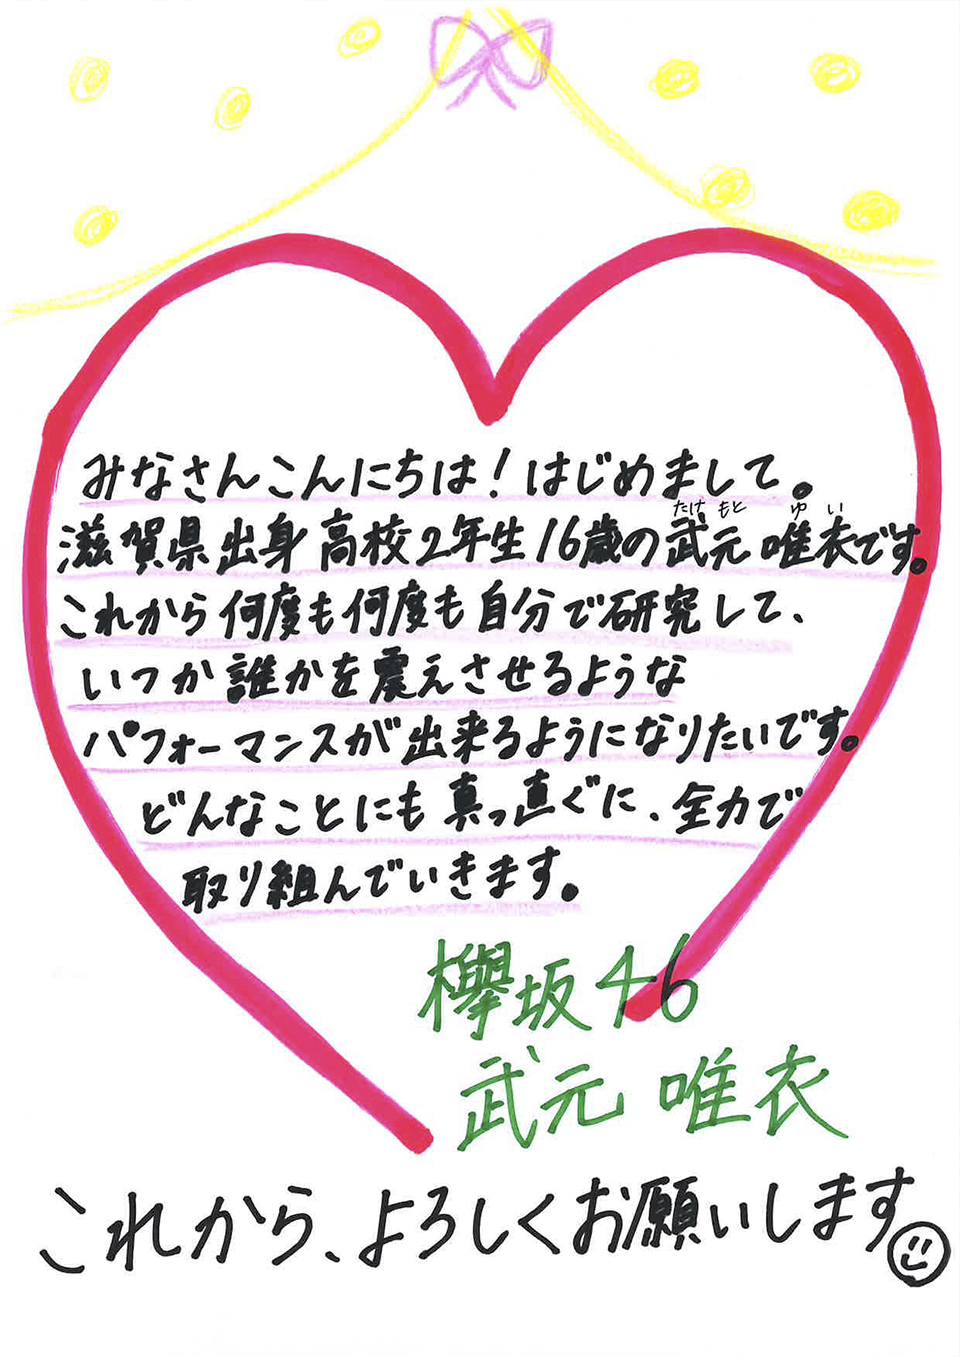 みなさんこんにちは！はじめまして。
滋賀県出身 高校2年生 16歳の武元 唯衣です。
たけ もと ゆ い
これから何度も何度も自分で研究して、
いつか誰かを震えさせるような
パフォーマンスが出来るようになりたいです。
どんなことにも真っ直ぐに、全力で
取り組んでいきます。
欅坂46
武元 唯衣
これから、よろしくお願いします